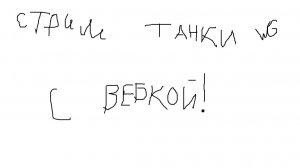 СТРИМ ТАНКИ WG
С ВЕБКОЙ!